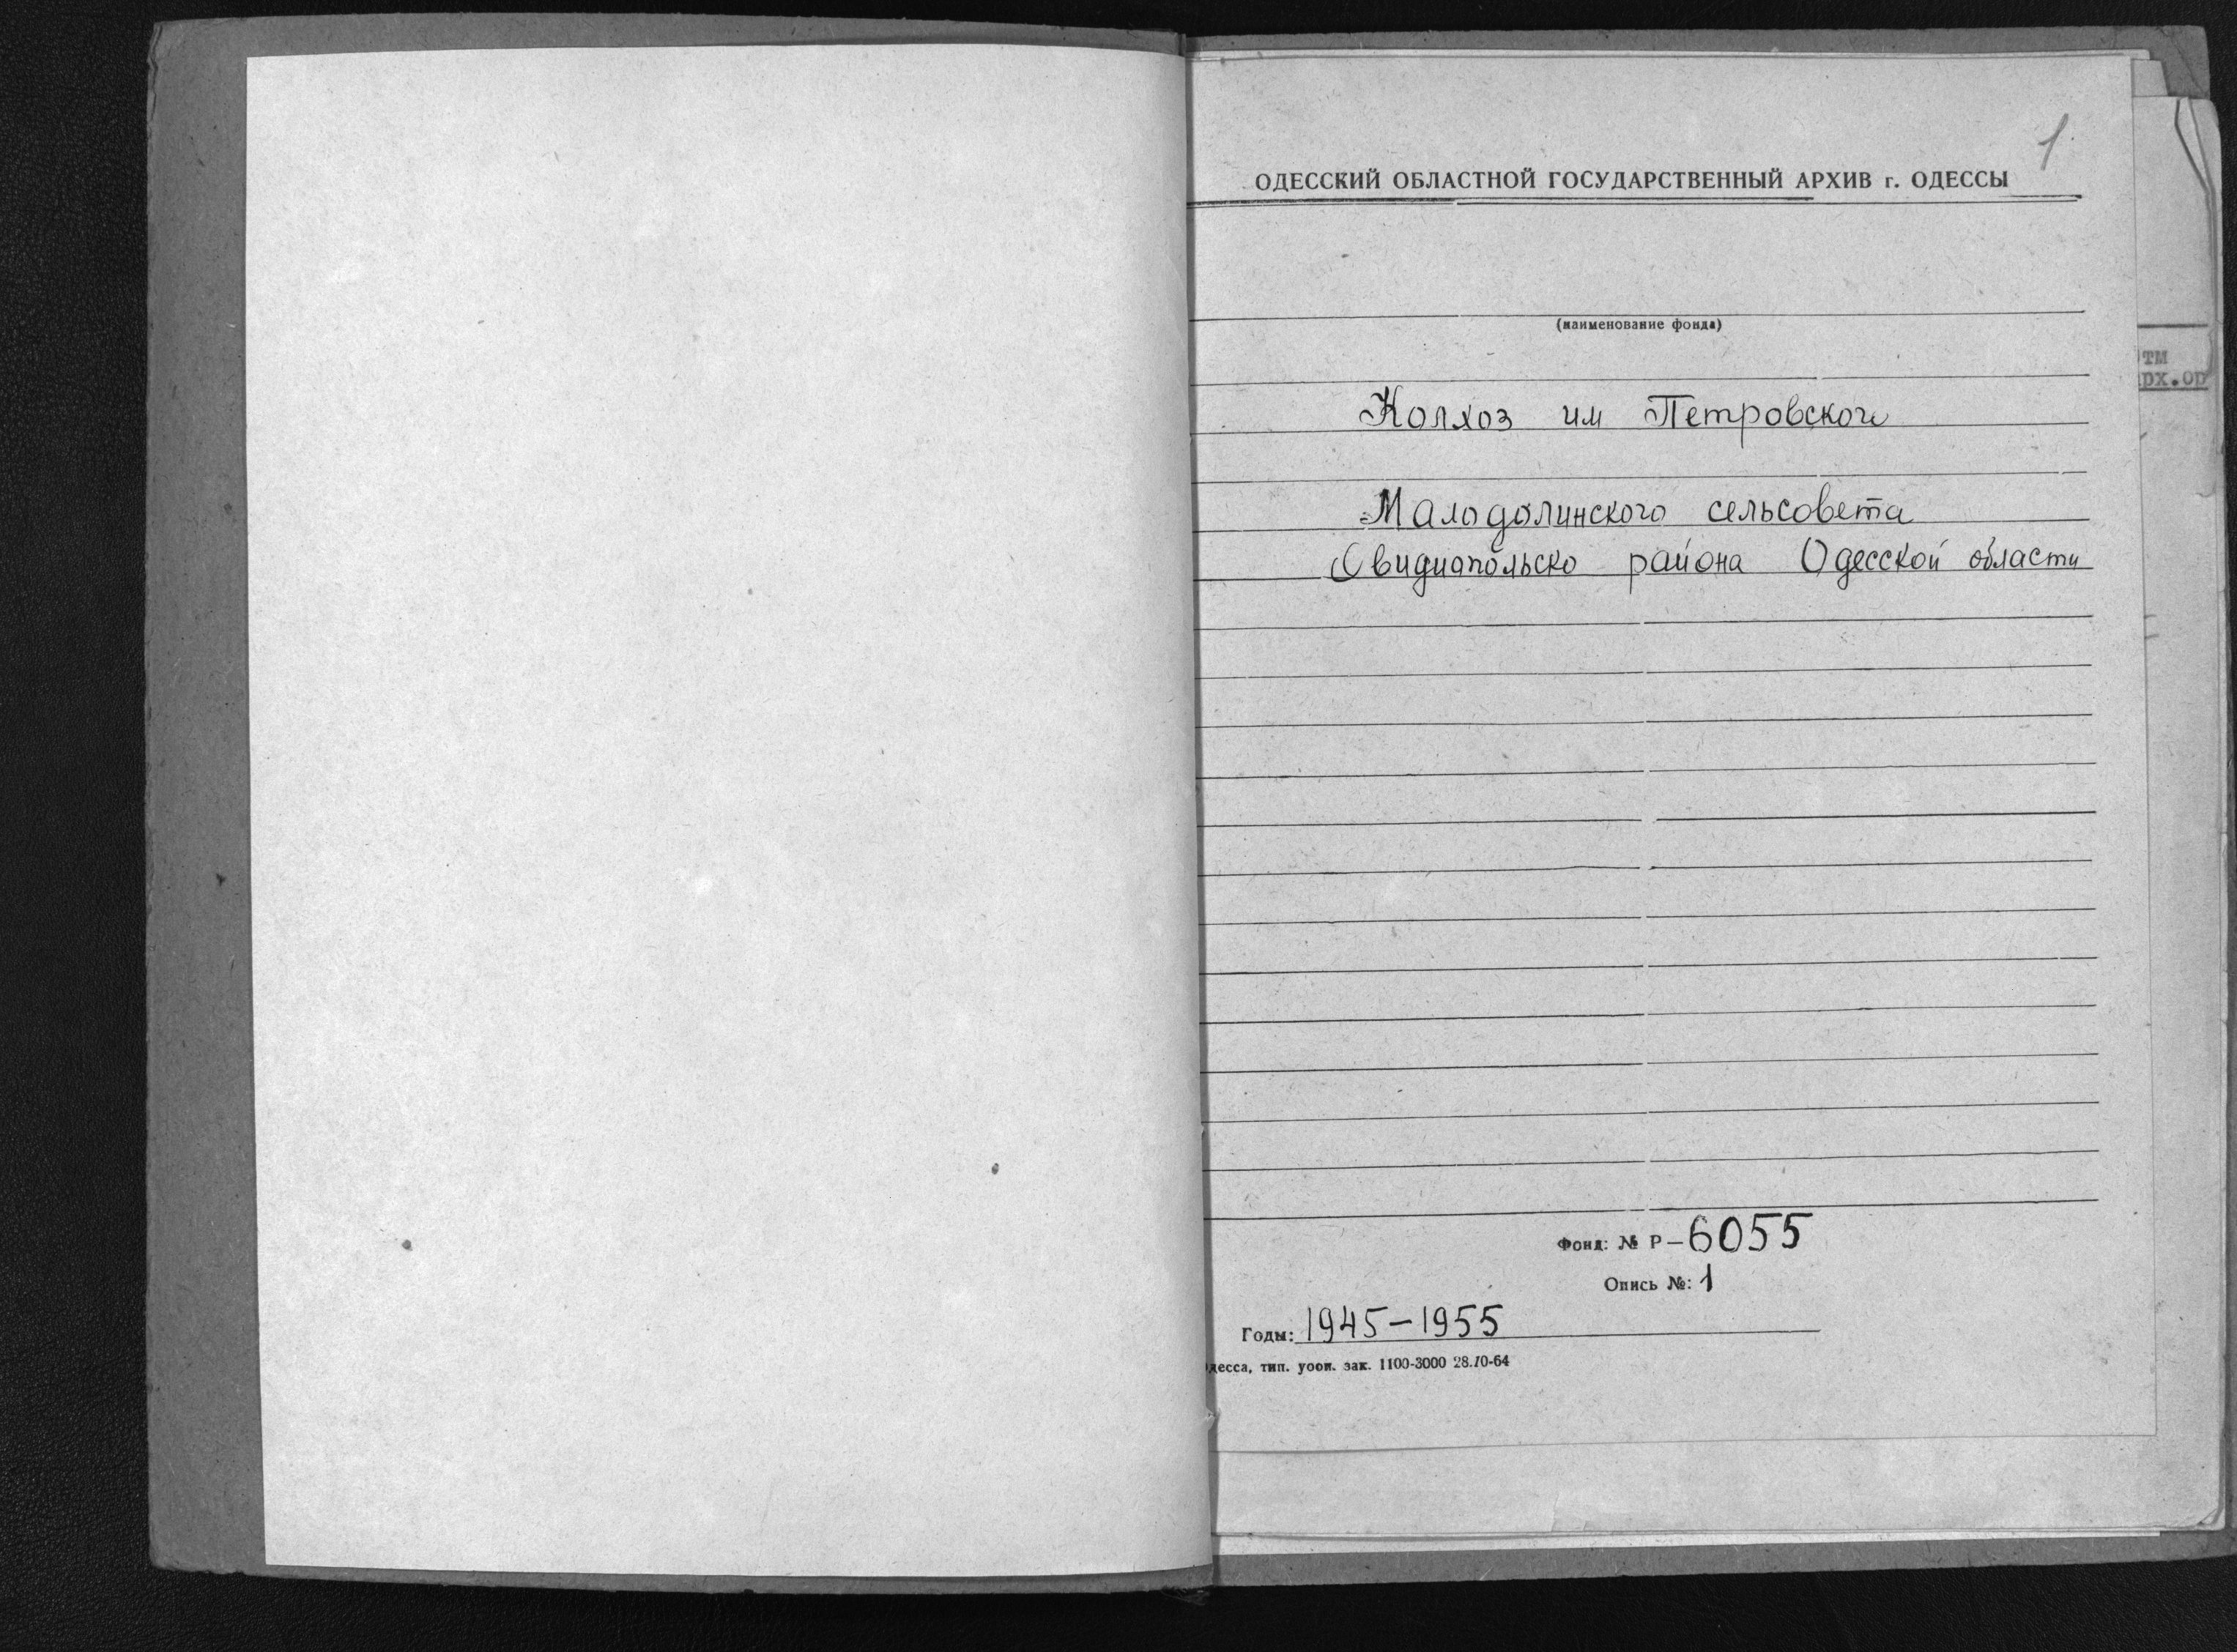 1
ОДЕССКИЙ ОБЛАСТНОЙ ГОСУДАРСТВЕННЫЙ АРХИВ г. ОДЕССЫ
(наименование фонда)
Колхоз им Петровского
Малодолинского сельсовета
Овидиопольско района Одесской области
Фонд: № Р-6055
Опись №: 1
Годы: 1945-1955
десса, тип. уоои. зак. 1100-3000 28.10-64
тм
рх.ор